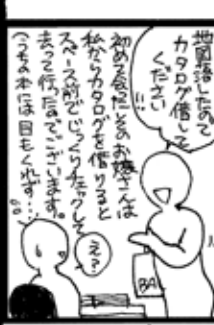 地図落したので
カタログ借して
ください
!!
初めて会だとのお嬢さんは
私からカタログを借りると
スペース前でじっくりチェックして
去って行ったのでございます。
(うちの本には目もくれず…)
え?
BA